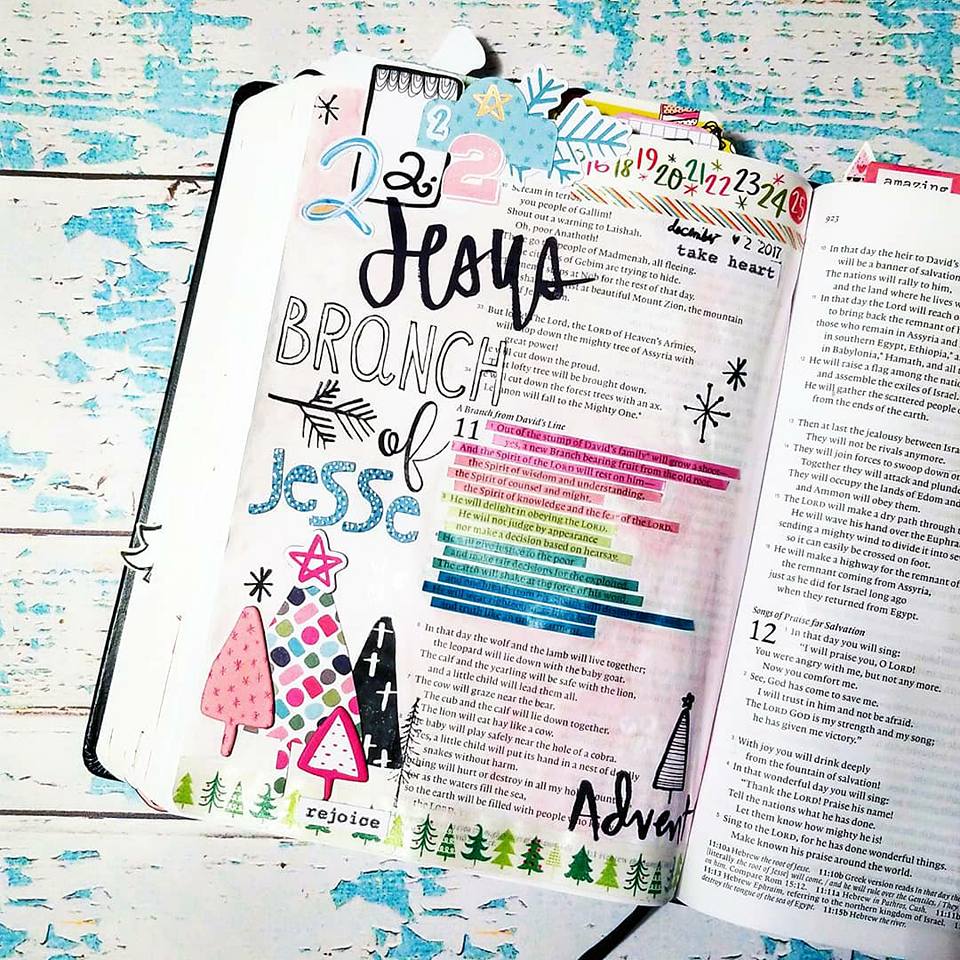 2
2
2
2
16 18 19 20 21 22 23 24 25
december ♥ 2 2017
take heart
Jesus
BRANCH
of
Jesse
rejoice
Advent
you people of Gallim!
Shout out a warning to Laishah.
Oh, poor Anathoth!
people of Madmenah, all fleeing.
of Gebim are trying to hide.
at Nob for the rest of that day.
at beautiful Mount Zion, the mountain
33 But the Lord, the LORD of Heaven's Armies,
down the mighty tree of Assyria with
great power!
cut down the proud.
lofty tree will be brought down.
34 cut down the forest trees with an ax.
will fall to the Mighty One.*
A Branch from David's Line
11 1 Out of the stump of David's family* will grow a shoot—
yes, a new Branch bearing fruit from the old root.
2 And the Spirit of the LORD will rest on him—
the Spirit of wisdom and understanding,
the Spirit of counsel and might,
the Spirit of knowledge and the fear of the LORD.
3 He will delight in obeying the LORD.
He will not judge by appearance
nor make a decision based on hearsay.
4 He will give justice to the poor
and make fair decisions for the exploited.
The earth will shake at the force of his word,
6 In that day the wolf and the lamb will live together;
the leopard will lie down with the baby goat.
The calf and the yearling will be safe with the lion,
and a little child will lead them all.
7 The cow will graze near the bear.
The cub and the calf will lie down together.
The lion will eat hay like a cow.
8 The baby will play safely near the hole of a cobra.
Yes, a little child will put its hand in a nest of deadly
snakes without harm.
9 Nothing will hurt or destroy in all my holy
for as the waters fill the sea,
so the earth will be filled with people who
the LORD.
amazing
923
10 In that day the heir to David's
will be a banner of salvation
The nations will rally to him,
and the land where he lives
11 In that day the Lord will reach
to bring back the remnant of
those who remain in Assyria and
in southern Egypt, Ethiopia,* and
in Babylonia,* Hamath, and all
12 He will raise a flag among the
and assemble the exiles of Israel.
He will gather the scattered people
from the ends of the earth.
13 Then at last the jealousy between
They will not be rivals anymore.
14 They will join forces to swoop down
Together they will attack and plunder
They will occupy the lands of Edom and
and Ammon will obey them.
15 The LORD will make a dry path through
He will wave his hand over the
sending a mighty wind to divide it into
so it can easily be crossed on foot.
16 He will make a highway for the remnant of
the remnant coming from Assyria,
just as he did for Israel long ago
when they returned from Egypt.
Songs of Praise for Salvation
12 1 In that day you will sing:
"I will praise you, O LORD!
You were angry with me, but not any more.
Now you comfort me.
2 See, God has come to save me.
I will trust in him and not be afraid.
The LORD GOD is my strength and my song;
he has given me victory."
3 With joy you will drink deeply
from the fountain of salvation!
4 In that wonderful day you will sing:
"Thank the LORD! Praise his name!
Tell the nations what he has done.
Let them know how mighty he is!
5 Sing to the LORD, for he has done wonderful things.
Make known his praise around the world.
11:10a Hebrew the root of Jesse. 11:10b Greek version reads In that day